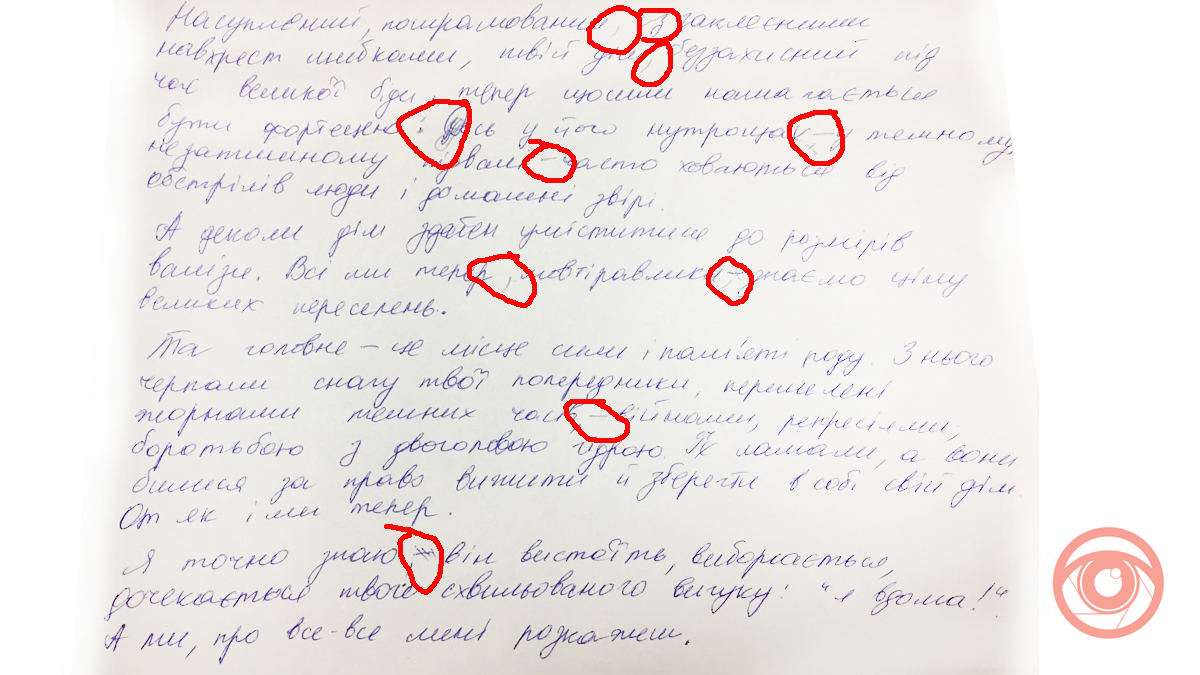 Насуплений, пошрамований, із заклеєними
навхрест шибками, твій дім, беззахисний під
час великої біди, тепер щосили намагається
бути фортецею: десь у його нутрощах – у темному,
незатишному підвалі – часто ховаються від
обстрілів люди і домашні звірі.
А деколи дім здатен уміститися до розмірів
валізи. Всі ми тепер, мов равлики – знаємо ціну
великих переселень.
Та головне – це місце сили і пам'яті роду. З нього
черпали снагу твої попередники, перемелені
жорнами темних часів – війнами, репресіями,
боротьбою з двоголовою гідрою. Їх ламали, а вони
билися за право вижити й зберегти в собі свій дім.
От як і ми тепер.
Я точно знаю, він вистоїть, виборсається,
дочекається твого схвильованого вигуку: "я вдома!".
А ти, про все-все мені розкажеш.